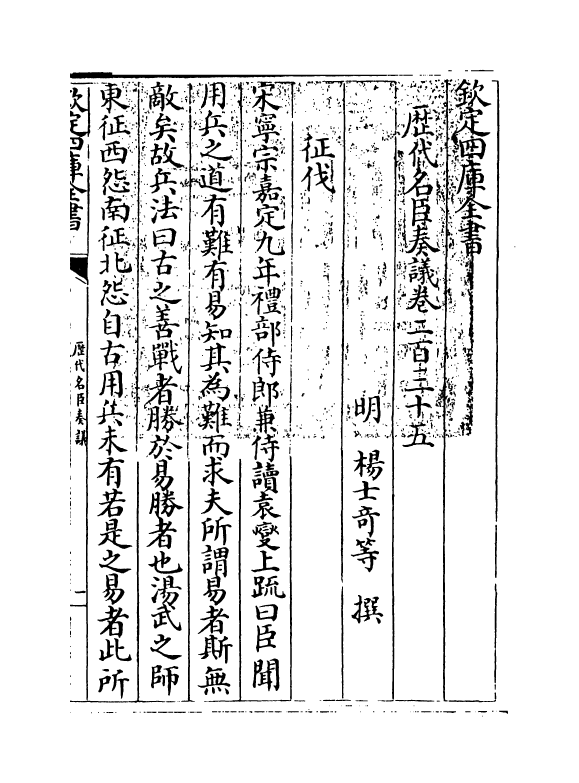 欽定四庫全書
歴代名臣奏議卷二百三十五
明 楊士奇等 撰
征伐
宋寧宗嘉定九年禮部侍郎兼侍讀袁燮上䟽曰臣聞
用兵之道有難有易知其為難而求夫所謂易者斯無
敵矣故兵法曰古之善戰者勝於易勝者也湯武之師
東征西怨南征北怨自古用兵未有若是之易者此所
欽定四庫全書
歴代名臣奏議
一